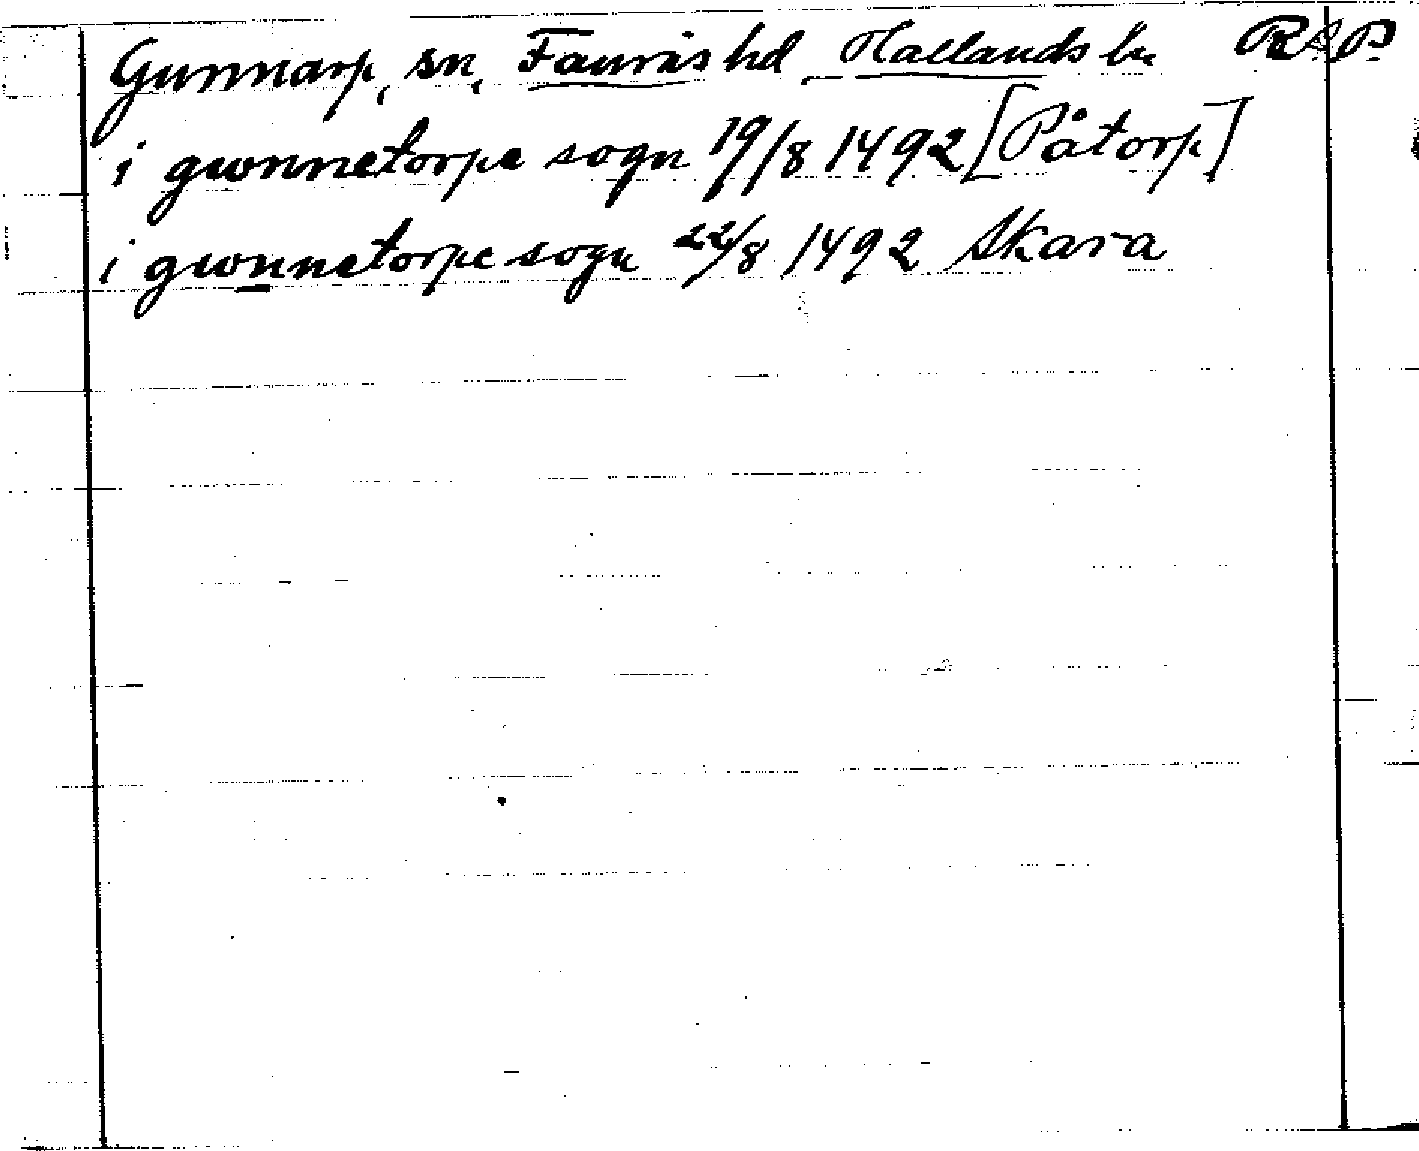 Gunnarp, sn, Faurås hd, Hallands ln RAP.
i gwnnetorpe sogn 19/8 1492 [Påtorp]
i gwnnetorpe sogn 22/8 1492 Skara